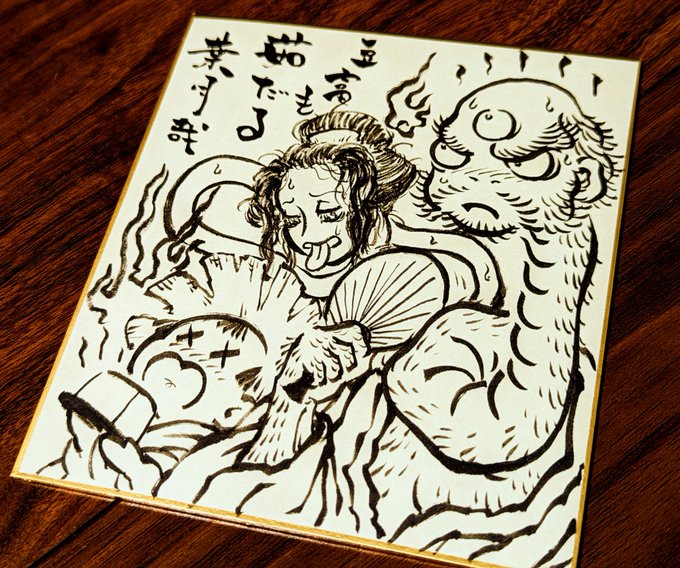 豆富も
茹だる
葉月哉